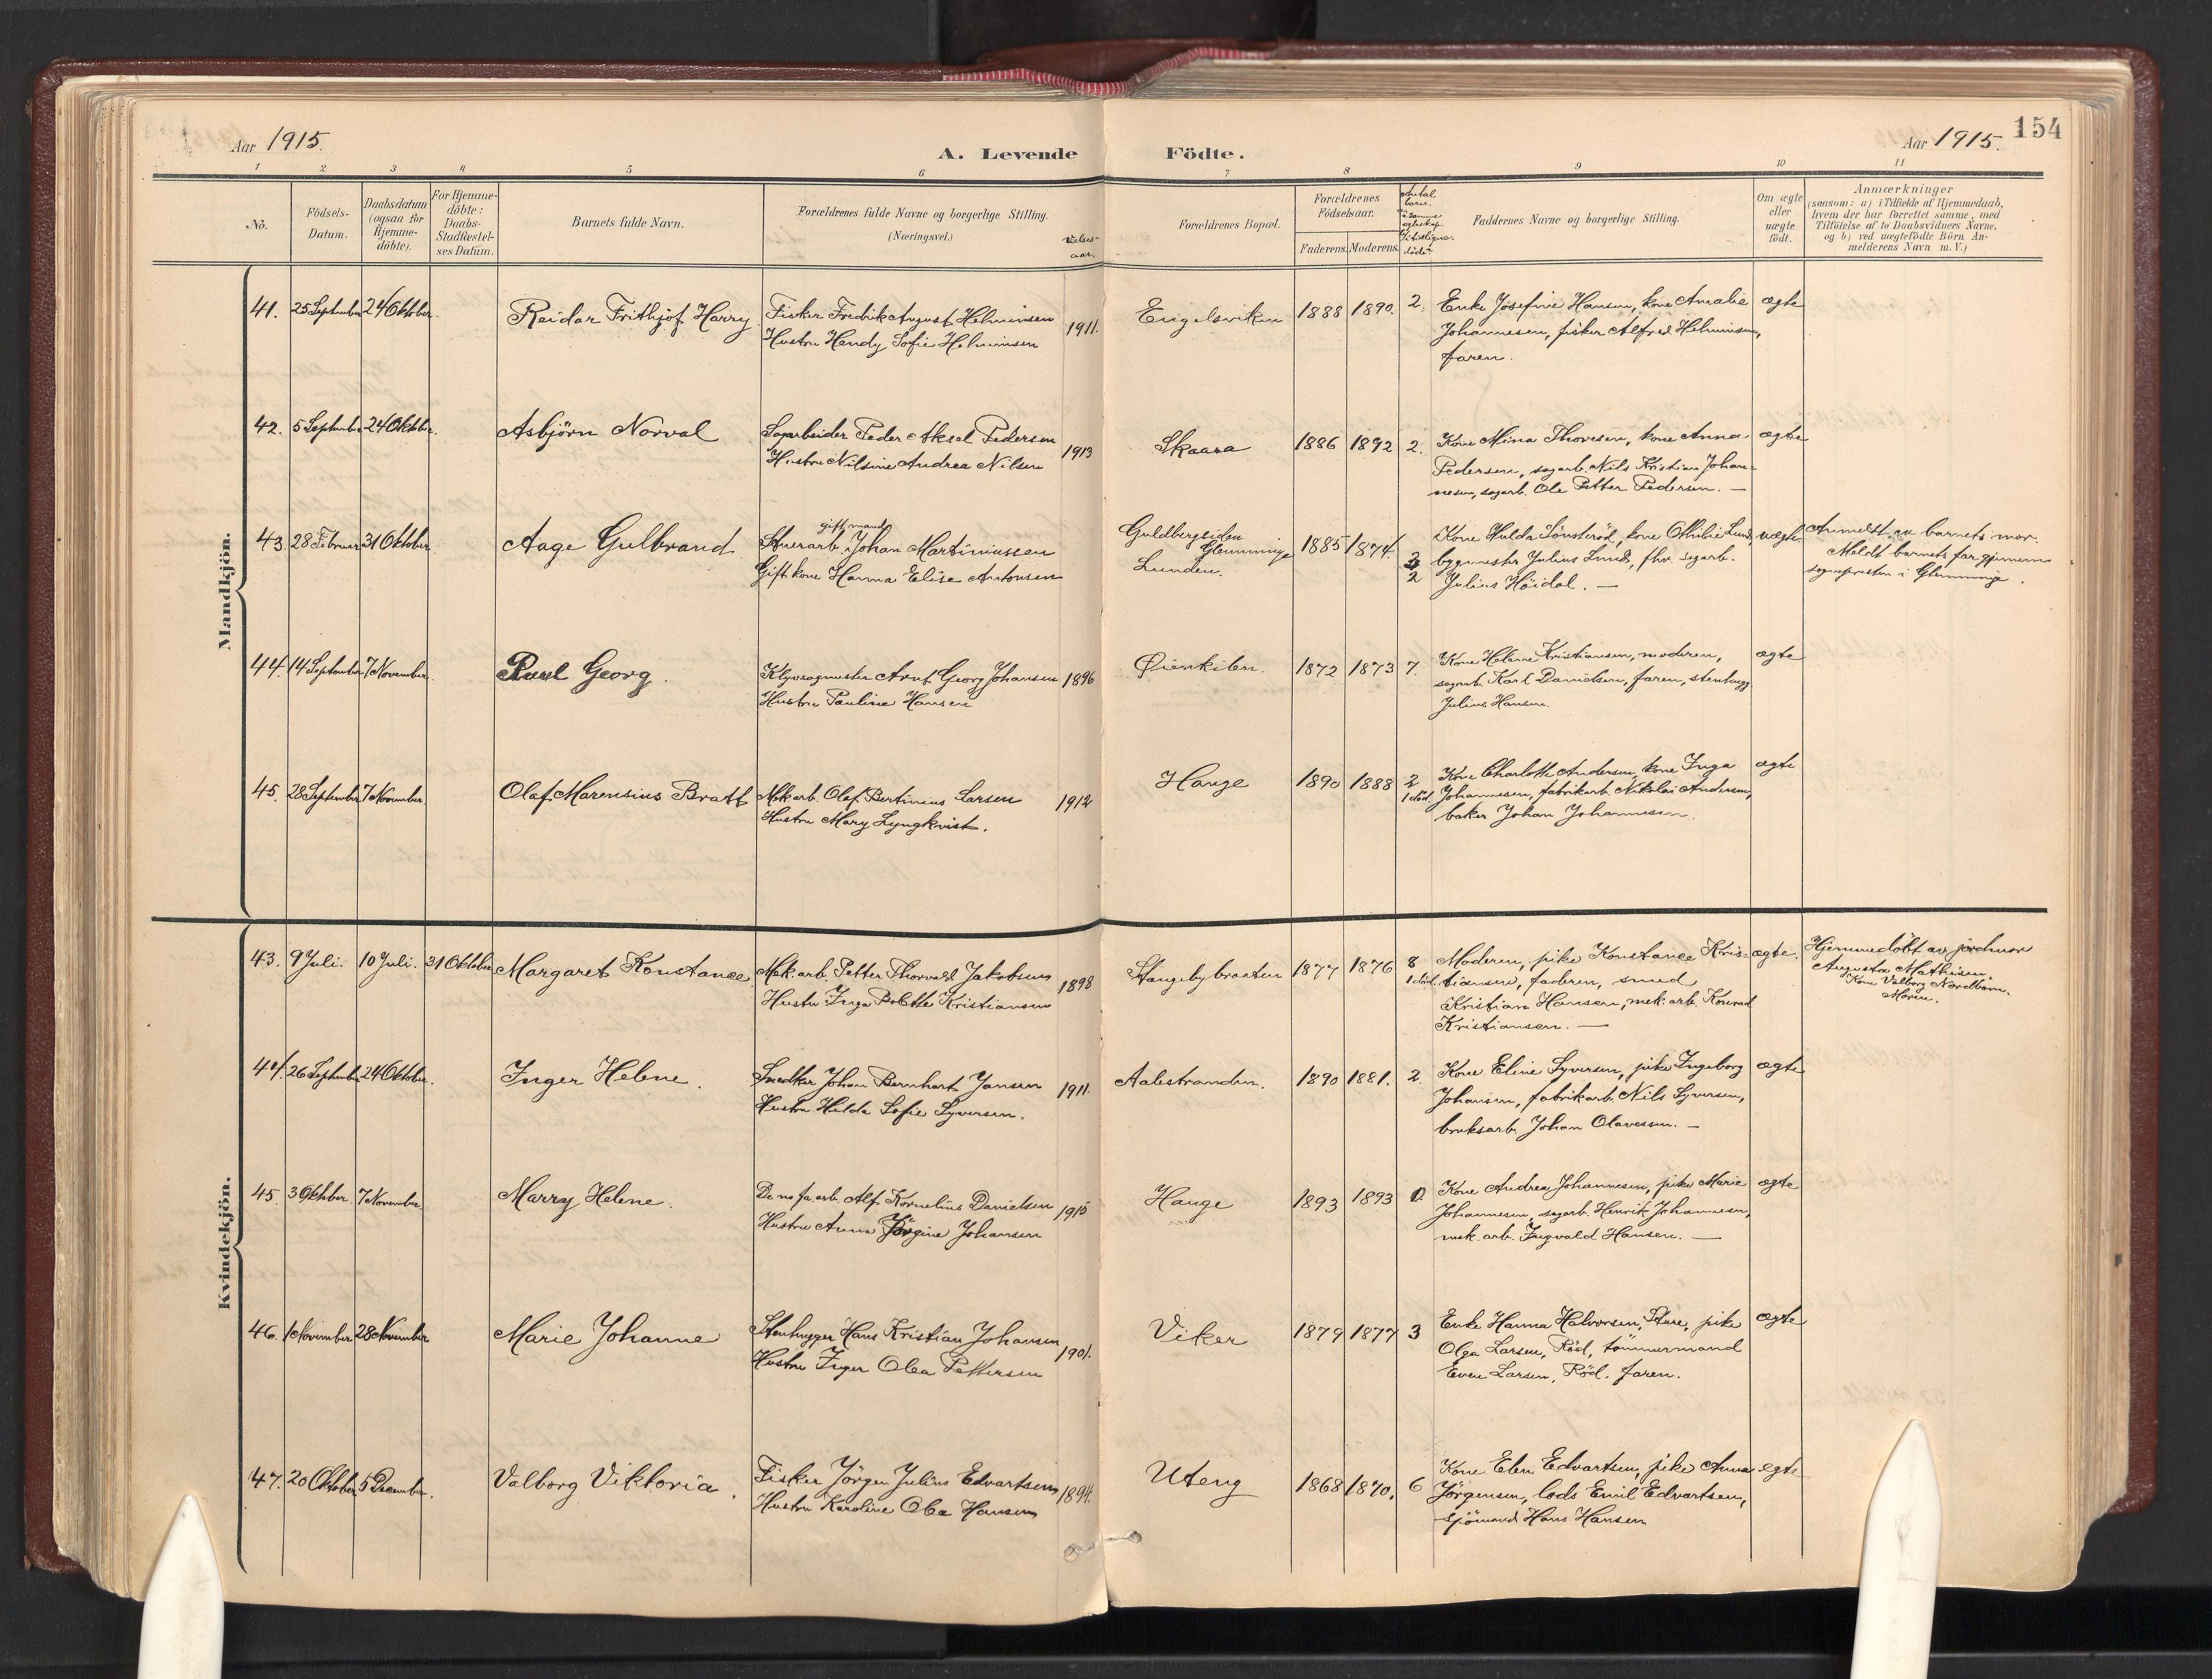 Aar 1915.
A. Levende Födte.
Aar 1915.
154
1 2 3 4 5 6 7 8 9 10 11
No.
Födsels-Datum.
Daabsdatum (ogsaa for Hjemme-döbte).
For Hjemme-döbte: Daabs-Stadfæstel-ses Datum.
Barnets fulde Navn.
Forældrenes fulde Navne og borgerlige Stilling. (Næringsvei.)
Vielses-aar.
Forældrenes Bopæl.
Forældrenes Födselsaar.
Faderens. Moderens.
Antal barn i samme egteskap.
Faddernes Navne og borgerlige Stilling.
Om ægte eller uægte födt.
Anmærkninger
(saasom: a) i Tilfælde af Hjemmedaab,
hvem der har forrettet samme, med
Tilföielse af to Daabsvidners Navne,
og b) ved uægtefödte Börn An-
melderens Navn m.V.)
Mandkjön.
41. 25 September 24 Oktober. Reidar Frithjof Harry Fisker Fredrik August Helminsen 1911. Engelsviken 1888 1890. 2. Enke Josefine Hansen, kone Amalie ægte
Hustru Hendy Sofie Helminsen Johannesen, fisker Alfred Helminsen,
faren.
42. 5 September 24 Oktober. Asbjörn Norval Sagarbeider Peder Aksel Pedersen 1913 Skaara 1886 1892 2. Kone Mina Thoresen, kone Anna ægte
Hustru Nilsine Andrea Nilsen Pedersen, sagarb. Nils Kristian Johan-
nesen, sagarb. Ole Petter Pedersen. —
gift mand
43. 28 Februar 31 Oktober. Aage Gulbrand Stuerarb. Johan Martiniussen Guldbergsiden Glemminge 1885 1874 Kone Hulda Tönsteröd, kone Othilie Lund, uægte Anmeldt av barnets mor.
Gift kone Hanna Elise Antonsen Lunden. 2 byggmester Julius Lund, fhv. sagarb. Meldt barnets far gjennem
Julius Höidal. — sognepresten i Glemminge.
44. 14 September 7 November. Paul Georg. Klyvsagmester Arnt Georg Johansen 1896 Öienkilen. 1872 1873 7. Kone Helene Kristiansen, moderen, ægte
Hustru Pauline Hansen sagarb. Karl Danielsen, faren, stenhugg.
Julius Hansen.
45. 28 September 7 November. Olaf Marensius Bratt Mek arb. Olaf Bertinius Larsen 1912 Hauge 1890 1888 2 Kone Charlotte Andersen, kone Inga ægte
Hustru Mary Lyngkvist. 1 död. Johannesen, fabrikarb. Nikolai Andersen,
baker Johan Johannesen.
Kvindekjön.
43. 9 Juli. 10 Juli. 31 Oktober Margaret Konstance Mek. arb. Petter Thorvald Jakobsen 1898 Stangebybraaten 1877 1876 8 Moderen, pike Konstance Kris- ægte. Hjemmedöbt av jordmor
Hustru Inga Bolette Kristiansen 1 död. tiansen, faderen, smed Augusta Mathisen.
Kristian Hansen, mek. arb. Konrad Kone Valborg Nordbom.
Kristiansen. — Moren.
44. 26 September 24 Oktober. Inger Helene. Snedker Johan Bernhart Jansen 1911. Aalestranden. 1890 1881. 2 Kone Eline Syversen, pike Ingeborg ægte
Hustru Hilda Sofie Syversen. Johansen, fabrikarb. Nils Syversen,
bruksarb. Johan Olavessen. —
45. 3 Oktober 7 November. Marry Helene. arb. Alf Kornelius Danielsen 1915 Hauge 1893 1893 0. Kone Andrea Johannesen, pike Marie ægte
Hustru Anna Jörgine Johansen Johannesen, sagarb. Henrik Johannesen,
mek. arb. Ingvald Hansen. —
46. 1 November 28 November Marie Johanne Stenhugger Hans Kristian Johansen 1901. Viker 1879 1877 3 Enke Hanna Halvorsen, pike ægte
Hustru Inger Olea Pettersen Olga Larsen, Röd, tömmermand
Even Larsen, Röd. faren.
47. 20 Oktober 5 December. Valborg Viktoria. Fisker Jörgen Julius Edvartsen 1894. Uteng 1868 1870. 6 Kone Elen Edvartsen, pike Anna ægte
Hustru Karoline Olea Hansen Jörgensen, lods Emil Edvartsen,
sjömand Hans Hansen